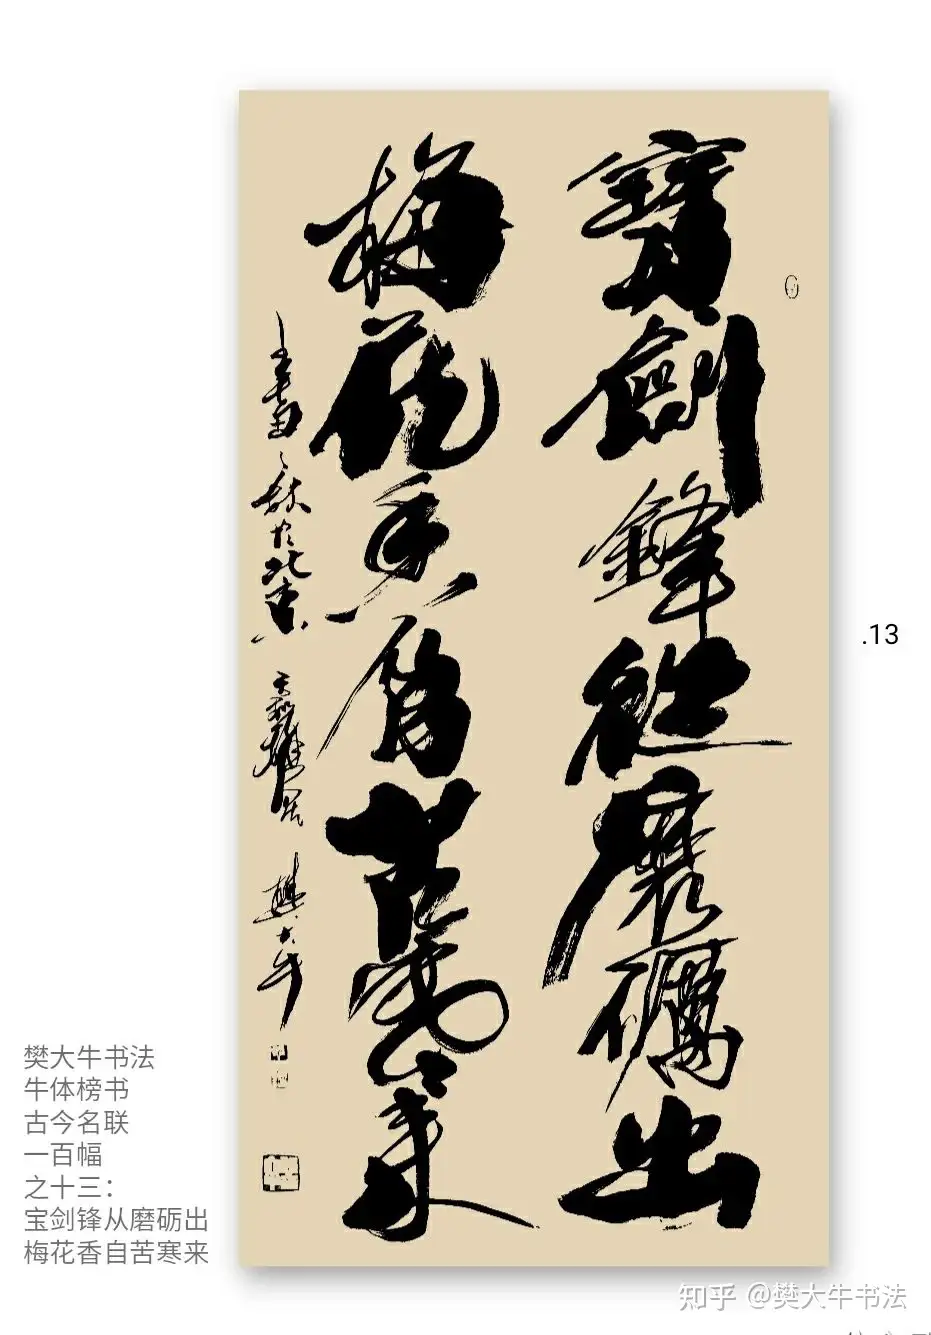 寶劍鋒從磨礪出
梅花香苦寒来
秋於北京
樊大牛
.13
樊大牛书法
牛体榜书
古今名联
一百幅
之十三：
宝剑锋从磨砺出
梅花香自苦寒来
知乎 @樊大牛书法